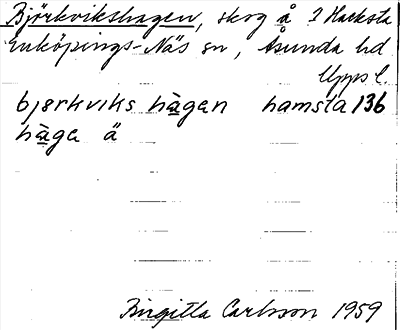 Björkvikshagen, skog å 2 Harksta
Enköpings-Näs sn, Åsunda hd
Upps l.
bjørkviks hàgen hamsta 136
hàga ä
Birgitta Carlsson 1959